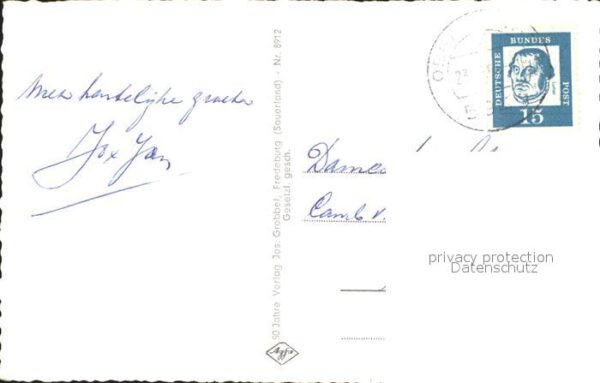 Met hartelijke groeten
Jos Jan
50 Jahre Verlag Jos. Grobbel, Fredeburg (Sauerland) - Nr. 8912
Gesetzl. gesch.
Agfa
DEUTSCHE
BUNDES
POST
15
Dames
Camb v.
privacy protection
Datenschutz